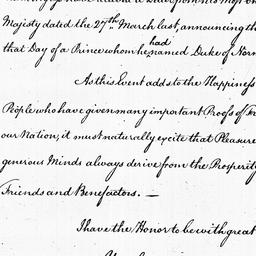 Majesty dated the 27th March last, announcing th
had
that Day of a Prince whom he named Duke of Nor
As this Event adds to the Happiness
People who have given many important Proofs of Fr
our Nation, it must naturally excite that Pleasure
generous Minds always derive from the Prosperity
Friends and Benefactors. —
I have the Honor to be with great